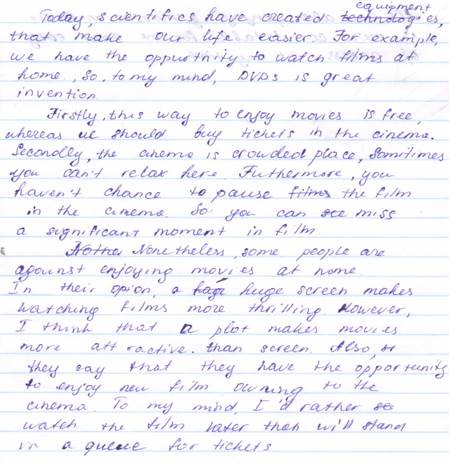 equipment
Today, scientifics have created technologies,
that make our life easier. For example,
we have the opprtunity to watch films at
home. So, to my mind, DVDs is great
invention.
Firstly, this way to enjoy movies is free,
whereas we should buy tickets in the cinema.
Secondly, the cinema is crowded place, sometimes
you can't relax here. Futhermore, you
haven't chance to pause films the film
in the cinema. So you can see miss
a significant moment in film
Nonetheless, some people are
against enjoying movies at home
In their opion, a huge screen makes
watching films more thrilling. However,
I think that a plot makes movies
more attractive than screen. Also,
they say that they have the opportunity
to enjoy new film owning to the
cinema. To my mind, I'd rather
watch the film later than will stand
in a queue for tickets